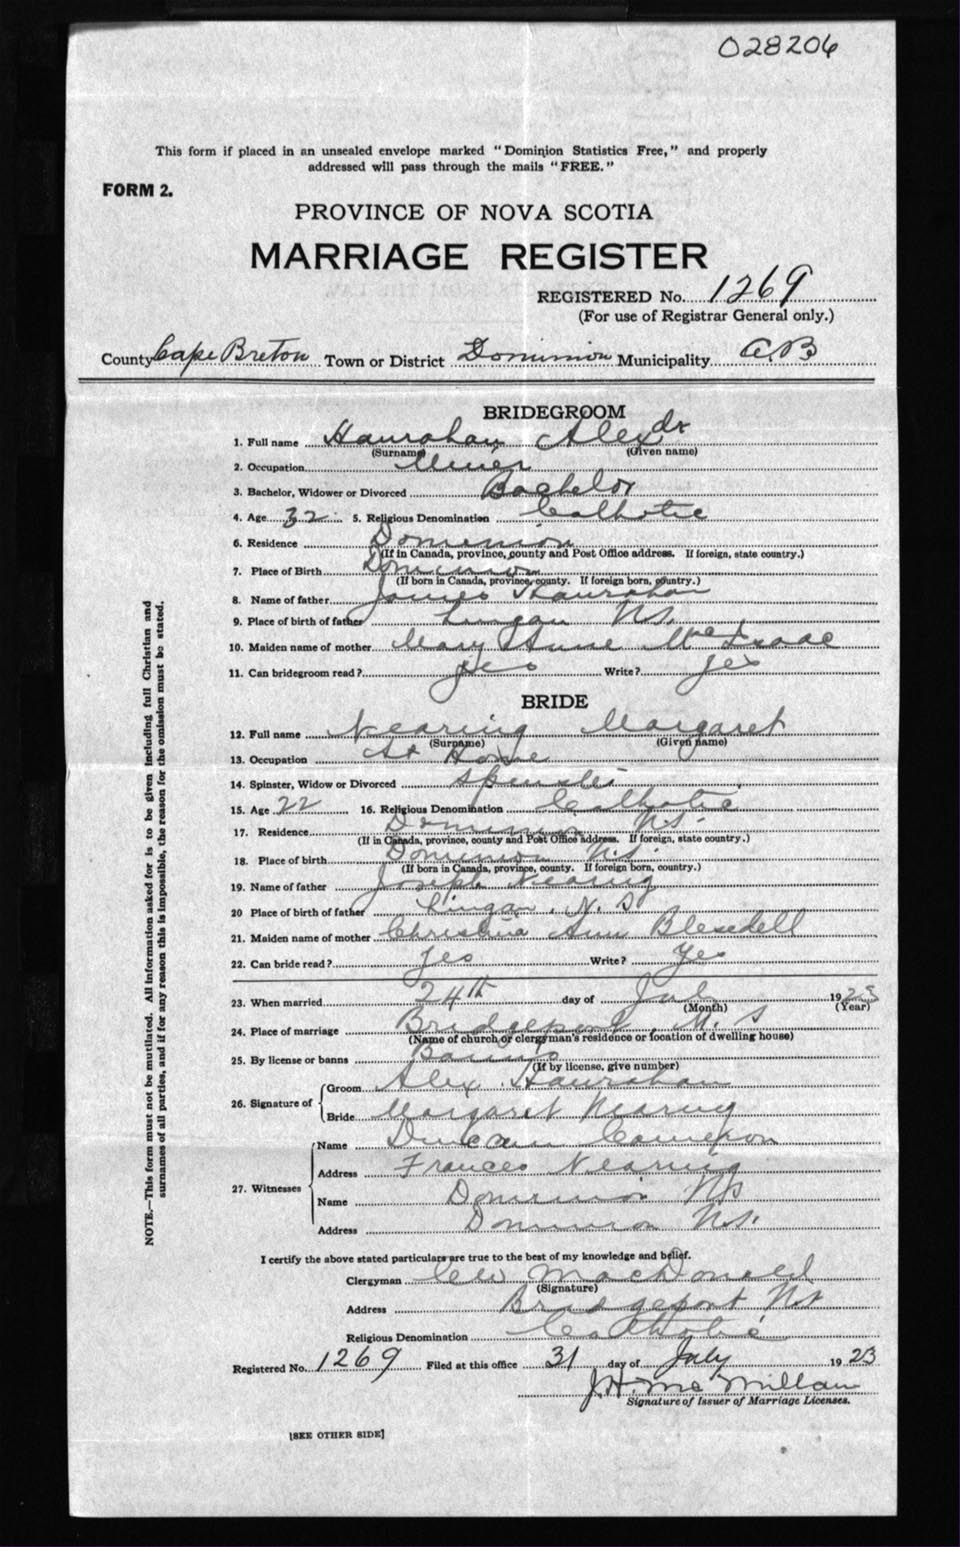 028206
This form if placed in an unsealed envelope marked "Dominion Statistics Free," and properly
addressed will pass through the mails "FREE."
FORM 2.
PROVINCE OF NOVA SCOTIA
MARRIAGE REGISTER
REGISTERED No. 1269
(For use of Registrar General only.)
County Cape Breton Town or District Dominion Municipality C.B
BRIDEGROOM
1. Full name Hanrahan Alexdr
(Surname) (Given name)
2. Occupation Miner
3. Bachelor, Widower or Divorced Bachelor
4. Age 32 5. Religious Denomination Catholic
6. Residence Dominion
(If in Canada, province, county and Post Office address. If foreign, state country.)
7. Place of Birth Dominion
(If born in Canada, province, county. If foreign born, country.)
8. Name of father James Hanrahan
9. Place of birth of father Lingan N.S.
10. Maiden name of mother Mary Anne
11. Can bridegroom read? yes Write? yes
BRIDE
12. Full name Nearing Margaret
(Surname) (Given name)
13. Occupation At Home
14. Spinster, Widow or Divorced Spinster
15. Age 22 16. Religious Denomination Catholic
17. Residence Dominion N.S.
(If in Canada, province, county and Post Office address. If foreign, state country.)
18. Place of birth Dominion N.S.
(If born in Canada, province, county. If foreign born, country.)
19. Name of father Joseph Nearing
20 Place of birth of father Lingan, N.S
21. Maiden name of mother Christina Ann Blesedell
22. Can bride read? yes Write? Yes
23. When married 24th day of Jul 1923
(Month) (Year)
24. Place of marriage Bridgeport N.S
(Name of church or clergyman's residence or location of dwelling house)
25. By license or banns Banns
(If by license, give number)
26. Signature of Groom Alex. Hanrahan
Bride Margaret Nearing
27. Witnesses Name Duncan Cameron
Address Frances Nearing
Name Dominion NS
Address Dominion N.S.
I certify the above stated particulars are true to the best of my knowledge and belief.
Clergyman MacDonald
(Signature)
Address Bridgeport NS
Religious Denomination Catholic
Registered No. 1269 Filed at this office 31 day of July 1923
J.H. McMillan
Signature of Issuer of Marriage Licenses.
[SEE OTHER SIDE]
NOTE.—This form must not be mutilated. All information asked for is to be given including full Christian and
surnames of all parties, and if for any reason this is impossible, the reason for the omission must be stated.